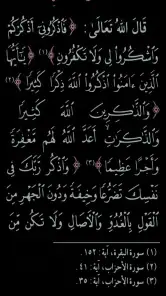 قَالَ اللهُ تَعَالَى: ﴿فَاذْكُرُونِي أَذْكُرْكُمْ
وَاشْكُرُوا لِي وَلَا تَكْفُرُونِ﴾(١) ﴿يَا أَيُّهَا
الَّذِينَ ءَامَنُوا اذْكُرُوا اللَّهَ ذِكْرًا كَثِيرًا﴾(٢)
﴿وَالذَّاكِرِينَ اللَّهَ كَثِيرًا
وَالذَّاكِرَاتِ أَعَدَّ اللَّهُ لَهُم مَّغْفِرَةً
وَأَجْرًا عَظِيمًا﴾(٣) ﴿وَاذْكُر رَّبَّكَ فِي
نَفْسِكَ تَضَرُّعًا وَخِيفَةً وَدُونَ الْجَهْرِ مِنَ
الْقَوْلِ بِالْغُدُوِّ وَالْآصَالِ وَلَا تَكُن مِّنَ
(١) سورة البقرة، آية: ١٥٢.
(٢) سورة الأحزاب، آية: ٤١.
(٣) سورة الأحزاب، آية: ٣٥.